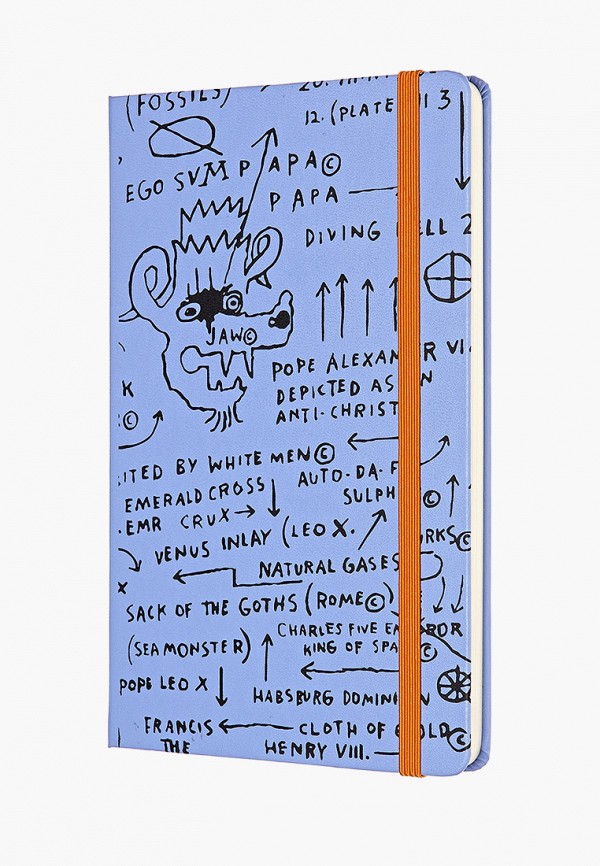 (FOSSILS)
12. (PLATE III 3
EGO SVM PAPA©
PAPA
DIVING BELL 2
JAW©
POPE ALEXANDER VI
DEPICTED AS AN
ANTI-CHRIST
K
©
ITED BY WHITE MEN©
AUTO-DA-F
EMERALD CROSS
SULPH ©
.EMR CRUX
VENUS INLAY (LEO X.
RKS©
NATURAL GASES
X
SACK OF THE GOTHS (ROME©)
CHARLES FIVE EMPEROR
KING OF SPA ©
(SEA MONSTER)
POPE LEO X
HABSBURG DOMINION
FRANCIS
CLOTH OF GOLD©
THE
HENRY VIII.